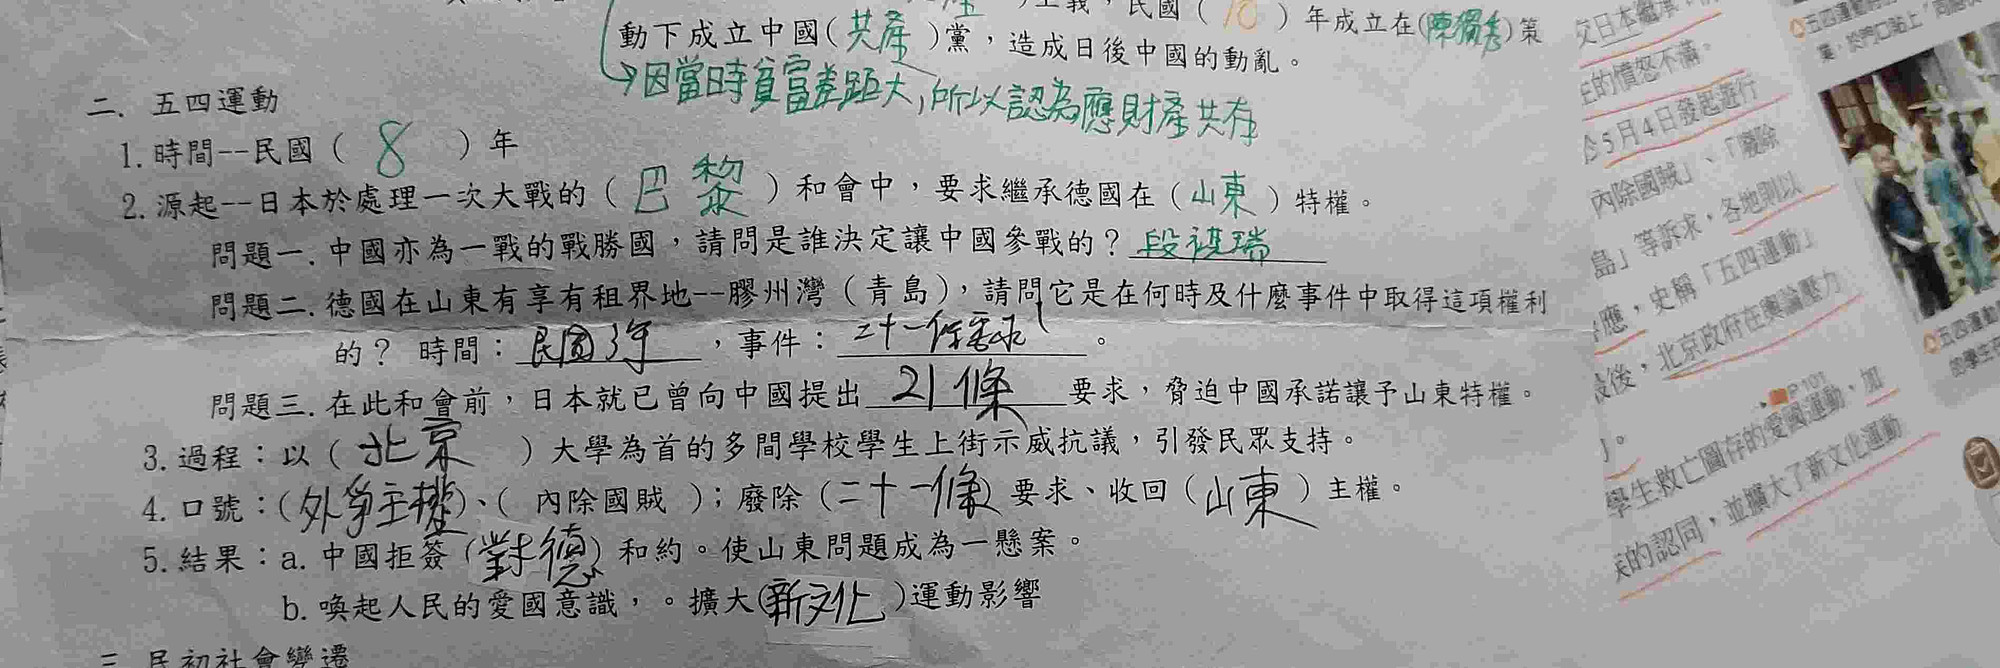 )主義，民國(10)年成立在(陳獨秀)策
動下成立中國(共產)黨，造成日後中國的動亂。
→因當時貧富差距大，所以認為應財產共存
二. 五四運動
1. 時間--民國（ 8 ）年
2. 源起--日本於處理一次大戰的（巴黎）和會中，要求繼承德國在（山東）特權。
問題一. 中國亦為一戰的戰勝國，請問是誰決定讓中國參戰的？段祺瑞
問題二. 德國在山東有享有租界地--膠州灣（青島），請問它是在何時及什麼事件中取得這項權利
的？ 時間：民國3年，事件：二十一條要求。
問題三. 在此和會前，日本就已曾向中國提出 21條 要求，脅迫中國承諾讓予山東特權。
3. 過程：以（北京）大學為首的多間學校學生上街示威抗議，引發民眾支持。
4. 口號：(外爭主權)、( 內除國賊 )；廢除（二十一條）要求、收回（山東）主權。
5. 結果：a. 中國拒簽(對德)和約。使山東問題成為一懸案。
b. 喚起人民的愛國意識，。擴大(新文化)運動影響
三 民初社會變遷
的憤怒不滿。
5月4日發起遊行
內除國賊」、「廢除
島」等訴求，各地則以
應，史稱「五四運動」
後，北京政府在輿論壓力
P101
學生救亡圖存的愛國運動，加
的認同，並擴大了新文化運動
五四運動
的學生